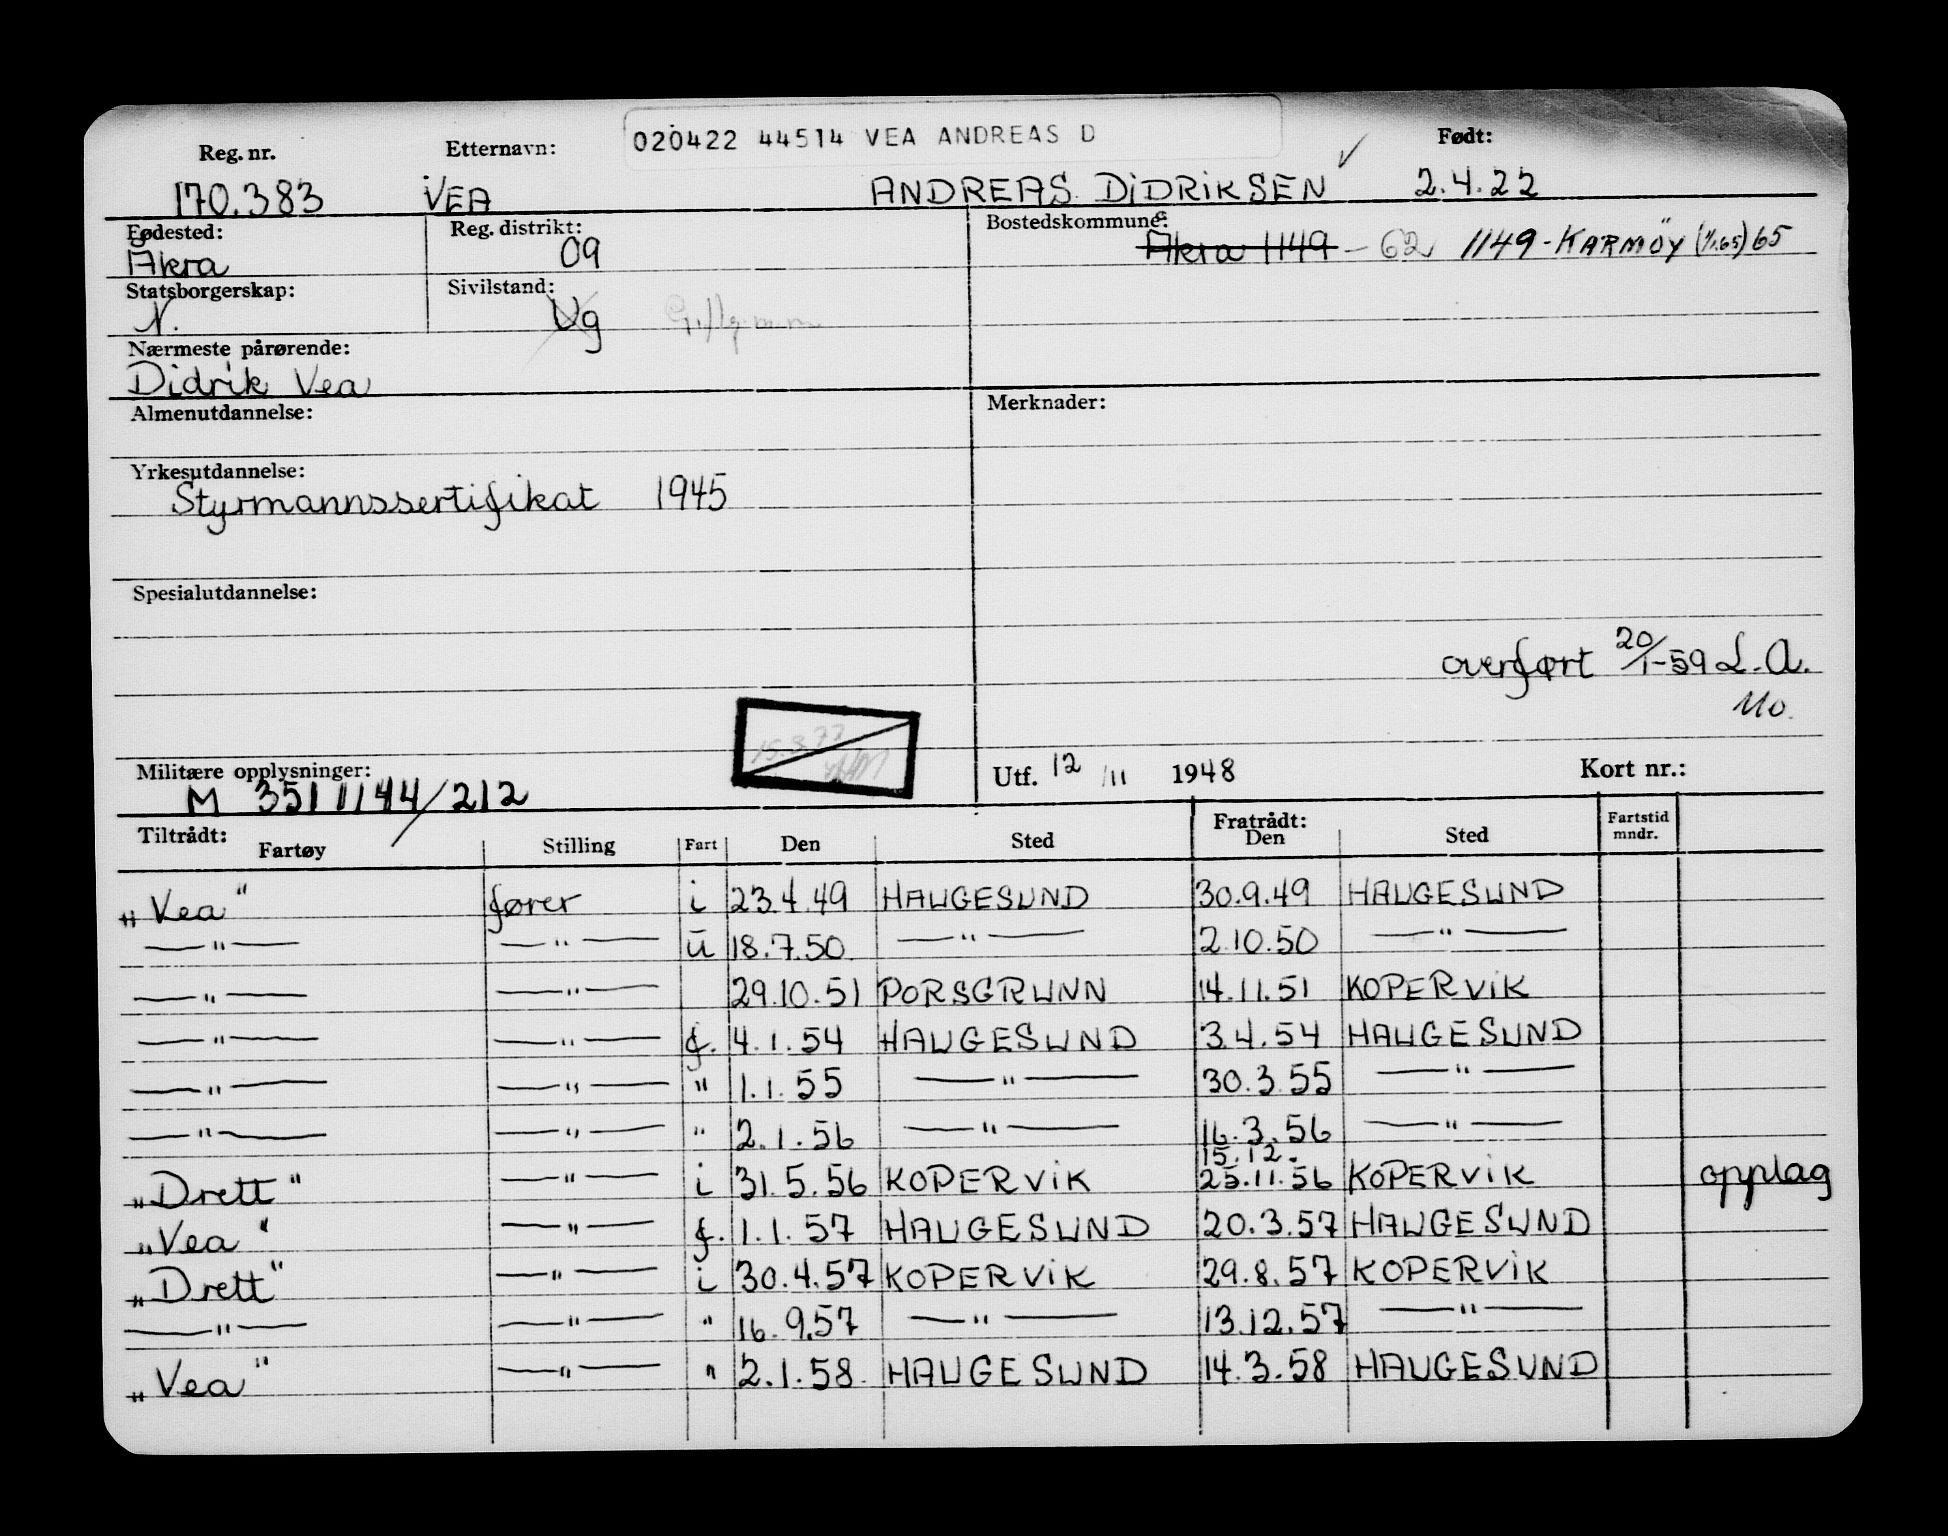 020422 44514 VEA ANDREAS D
Reg. nr. Etternavn: Født:
170.383 VEA ANDREAS DiDRiKSEN ✓ 2.4.22
Fødested: Reg. distrikt: Bostedskommune:
Åkra 09 Åkra 1149 – 62 1149-KARMÖY (1/1.65) 65
Statsborgerskap: Sivilstand:
N. Ug
Nærmeste pårørende:
Didrik Vea
Almenutdannelse: Merknader:
Yrkesutdannelse:
Styrmannssertifikat 1945
Spesialutdannelse:
overført 20/1-59 L.A.
Mo.
15.3.77
Militære opplysninger: Utf. 12/11 1948 Kort nr.:
M 3511144/212
Tiltrådt: Fratrådt: Fartstid
Fartøy Stilling Fart Den Sted Den Sted mndr.
„Vea" fører i 23.4.49 HAUGESUND 30.9.49 HAUGESUND
—"— —"— u 18.7.50 —"— 2.10.50 —"—
—"— —"— 29.10.51 PORSGRUNN 14.11.51 KOPERViK
—"— —"— f. 4.1.54 HAUGESUND 3.4.54 HAUGESUND
—"— —"— " 1.1.55 —"— 30.3.55 —"—
—"— —"— " 2.1.56 —"— 16.3.56 —"—
15.12.
„Drett" —"— i 31.5.56 KOPERViK 25.11.56 KOPERViK opplag
„Vea" —"— f. 1.1.57 HAUGESUND 20.3.57 HAUGESUND
„Drett" —"— i 30.4.57 KOPERViK 29.8.57 KOPERViK
—"— —"— " 16.9.57 —"— 13.12.57 —"—
„Vea" —"— " 2.1.58 HAUGESUND 14.3.58 HAUGESUND